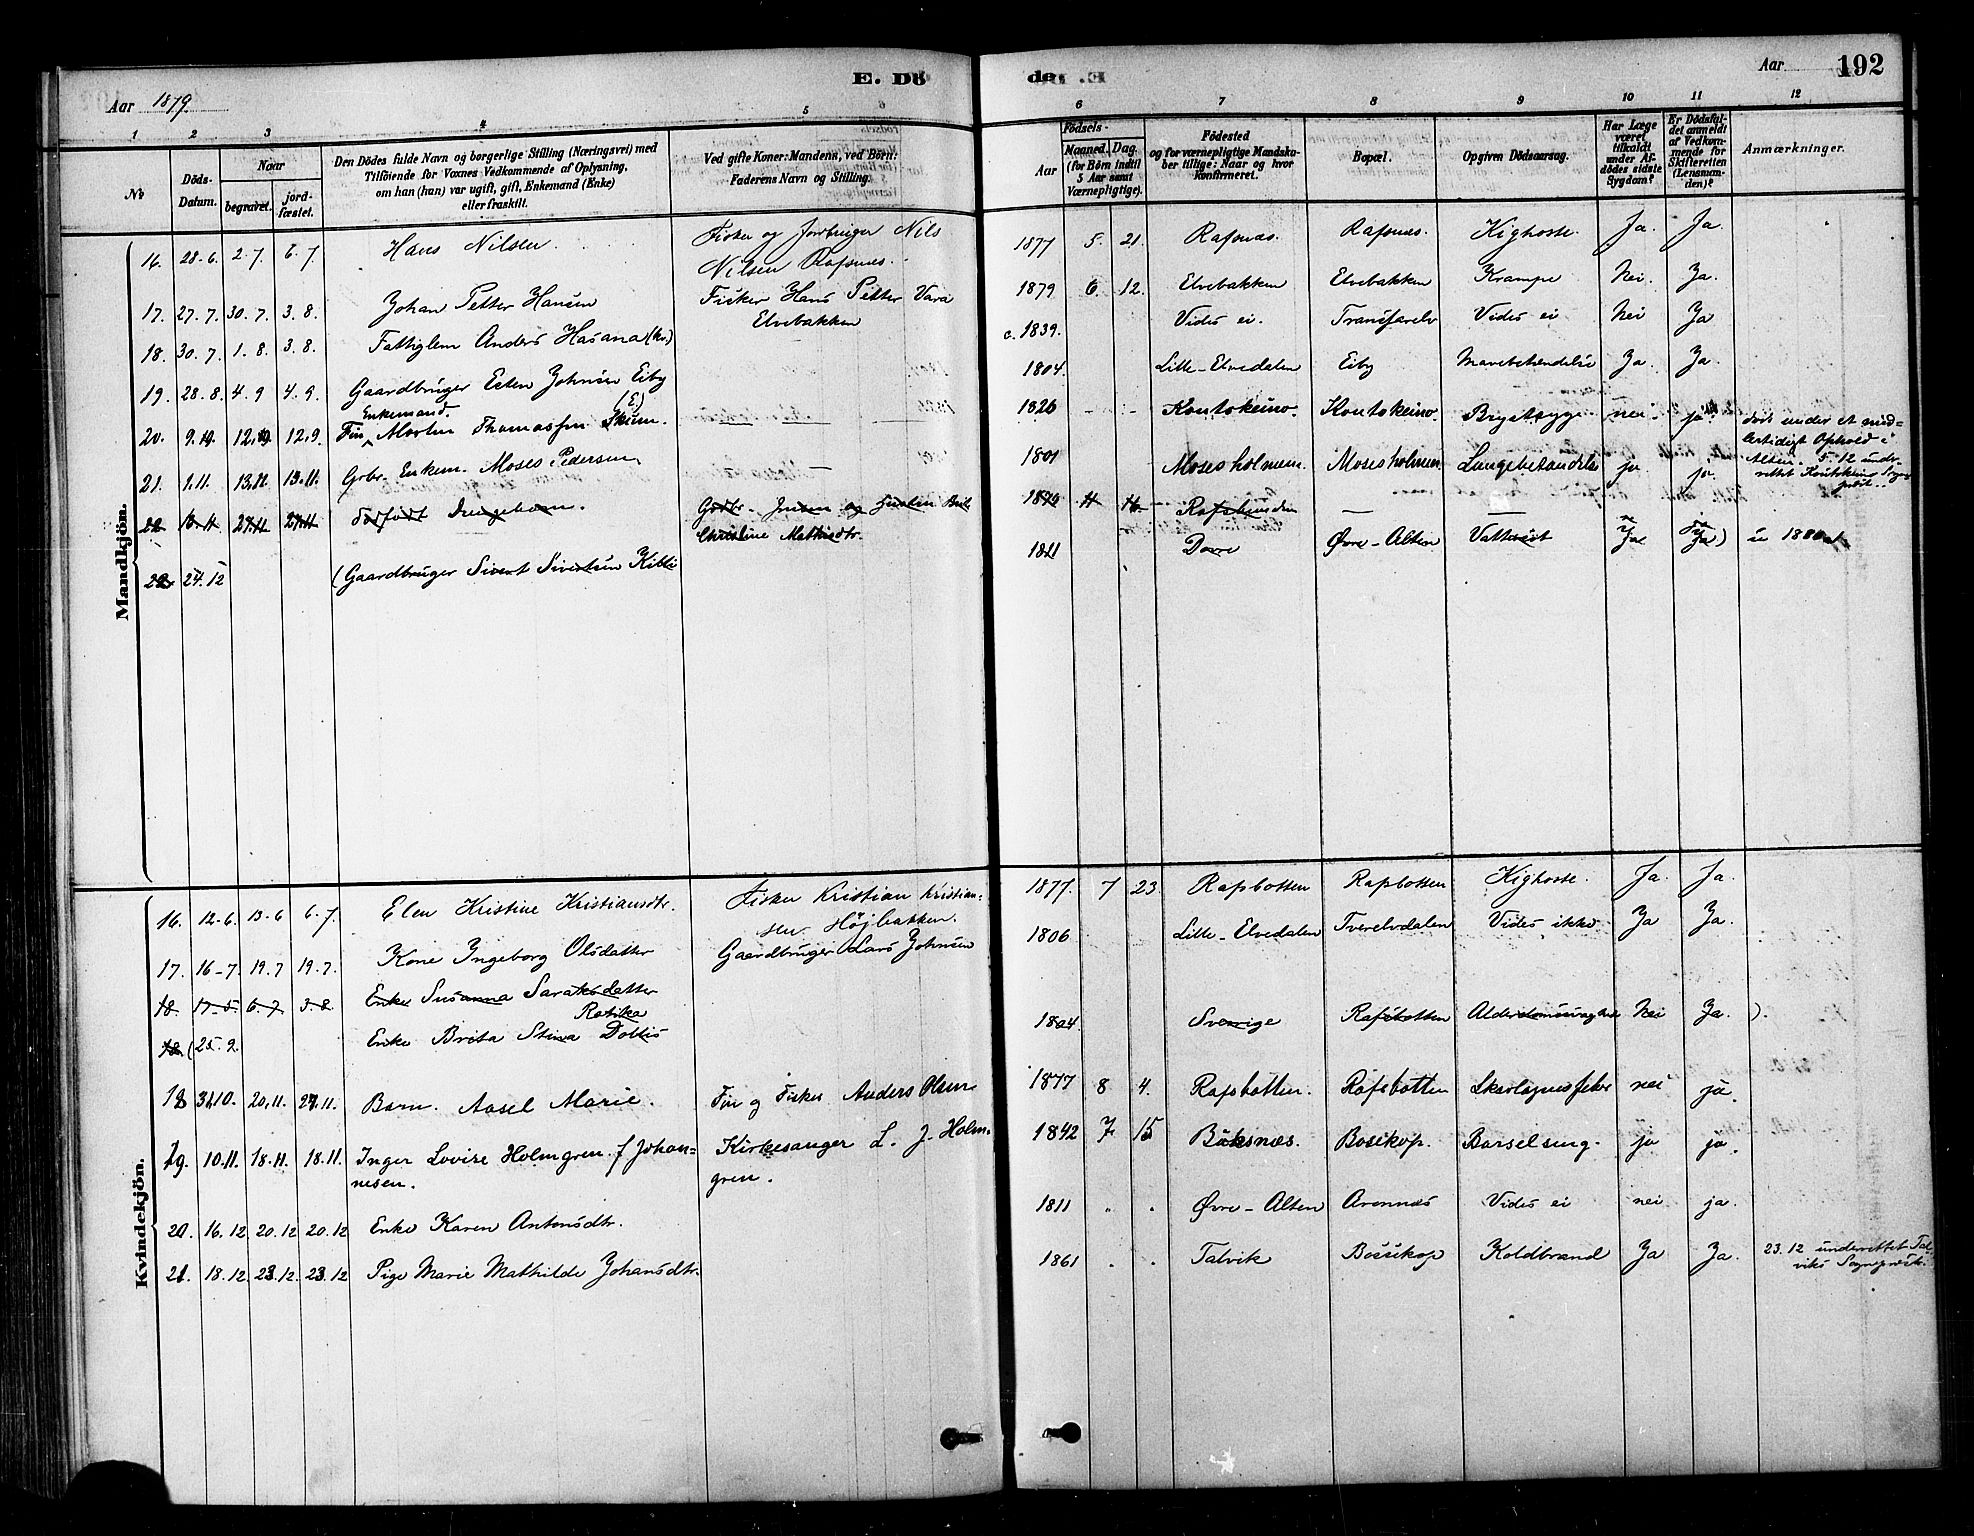 E. Dö
de E.
Aar
192
Aar 1879.
1 2 3 4 5
6 7 8 9 10 11 12
No
Döds-Datum.
Naar
begravet.
jord-fæstet.
Den Dödes fulde Navn og borgerlige Stilling (Næringsvei) med
Tilföiende for Voxnes Vedkommende af Oplysning,
om han (hun) var ugift, gift, Enkemand (Enke)
eller fraskilt.
Ved gifte Koner: Mandens, ved Børn:
Faderens Navn og Stilling.
Födsels-
Aar
Maaned. Dag.
(for Börn indtil
5 Aar samt
Værnepligtige).
Födested
og for værnepligtige Mandska-
ber tillige: Naar og hvor
konfirmeret.
Bopæl.
Opgiven Dödsaarsag.
Har Læge
været
tilkaldt
under Af-
dödes sidste
Sygdom?
Er Dödsfal-
det anmeldt
af Vedkom-
mende for
Skifteretten
(Lensman-
den)?
Anmærkninger.
Mandkjön.
16. 28.6. 2.7. 6.7. Hans Nilsen. Fisker og Jordbruger Nils
Nilsen Rafsnes. 1877 5. 21. Rafsnæs. Rafsnæs. Kighoste. Ja. Ja.
17. 27.7. 30.7. 3.8. Johan Petter Hansen Fisker Hans Petter Vara
Elvebakken 1879 6. 12. Elvebakken Elvebakken Krampe Nei. Ja.
18. 30.7. 1.8. 3.8. Fattiglem Anders Hasana (kv.) c. 1839. Vides ei. Transfarelv Vides ei Nei Ja
19. 28.8. 4.9 4.9. Gaardbruger Esten Johnsen Eiby 1804 Lille-Elvedalen Eiby Mavebetændelse Ja. Ja.
Enkemand (E.)
20. 9.9. 12.9. 12.9. Fin Morten Thomassen Skum. 1826 - - Koutokeino. Koutokeino. Brystsyge nei ja dødt under et mid-
lertidigt Ophold i
Alten. 5.12 undr.
rettet Koutokeino Sogne-
præst.
21. 1.11. 13.11 13.11. Grbr. Enkem. Moses Pedersen 1801 Mosesholmen. Mosesholmen Lungebetændelse ja. ja.
22 27.11 27.11 Dødfødt Drengebarn.
Christine Mathisdtr. 1879 11
22 24.12 (Gaardbruger Sivert Sivertsen Kibli 1821 Dovre Øvre-Alten Vattersot Ja Ja)
Kvindekjön.
16. 12.6. 13.6 6.7. Elen Kristine Kristiansdtr. Fisker Kristian Kristian-
sen Højbakken. 1877. 7 23. Rafsbotten Rafsbotten Kighoste. Ja. Ja.
17. 16-7. 19.7 19.7. Kone Ingeborg Olsdatter Gaardbruger Lars Johnsen 1806 Lille-Elvedalen Tverelvdalen Vides ikke Ja Ja.
18. 17-5. 6-7 3-8. Enke Susanna Saraksdatter
Ratika
18. (25.9. Enke Brita Stina Dollis 1804. Sverrige Rafsbotten Alderdomssvaghed Nei Ja. ).
18 31.10. 20.11. 27.11. Barn. Aasel Marie. Fin og Fisker Anders Olsen 1877 8 4. Rafsbotten. Rafsbotten Skarlagensfeber nei ja.
19. 10.11. 18.11. 18.11. Inger Lovise Holmgren f Johan-
nesen. Kirkesanger L. J. Holm-
gren. 1842 7 15 Buksnæs. Bosikop. Barselseng. ja ja.
20 16.12 20.12 20.12 Enke Karen Antonsdtr. 1811 Øvre-Alten Aronnæs Vides ei nei ja.
21 18.12. 23.12. 23.12 Pige Marie Mathilde Johansdtr. 1861 Talvik Bossikop Koldbrand Ja Ja. 23.12 underrettet Tal-
viks Sognepræst.